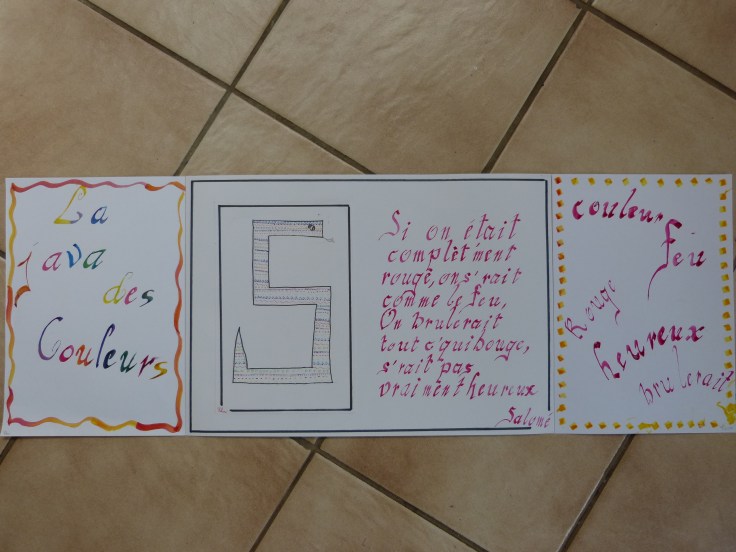 La
java
des
Couleurs
Si on était
complèt'ment
rouge, on s'rait
comme le feu,
On brulerait
tout c'qui bouge,
s'rait pas
vraiment heureux
Salomé
couleur
feu
Rouge
heureux
brulerait